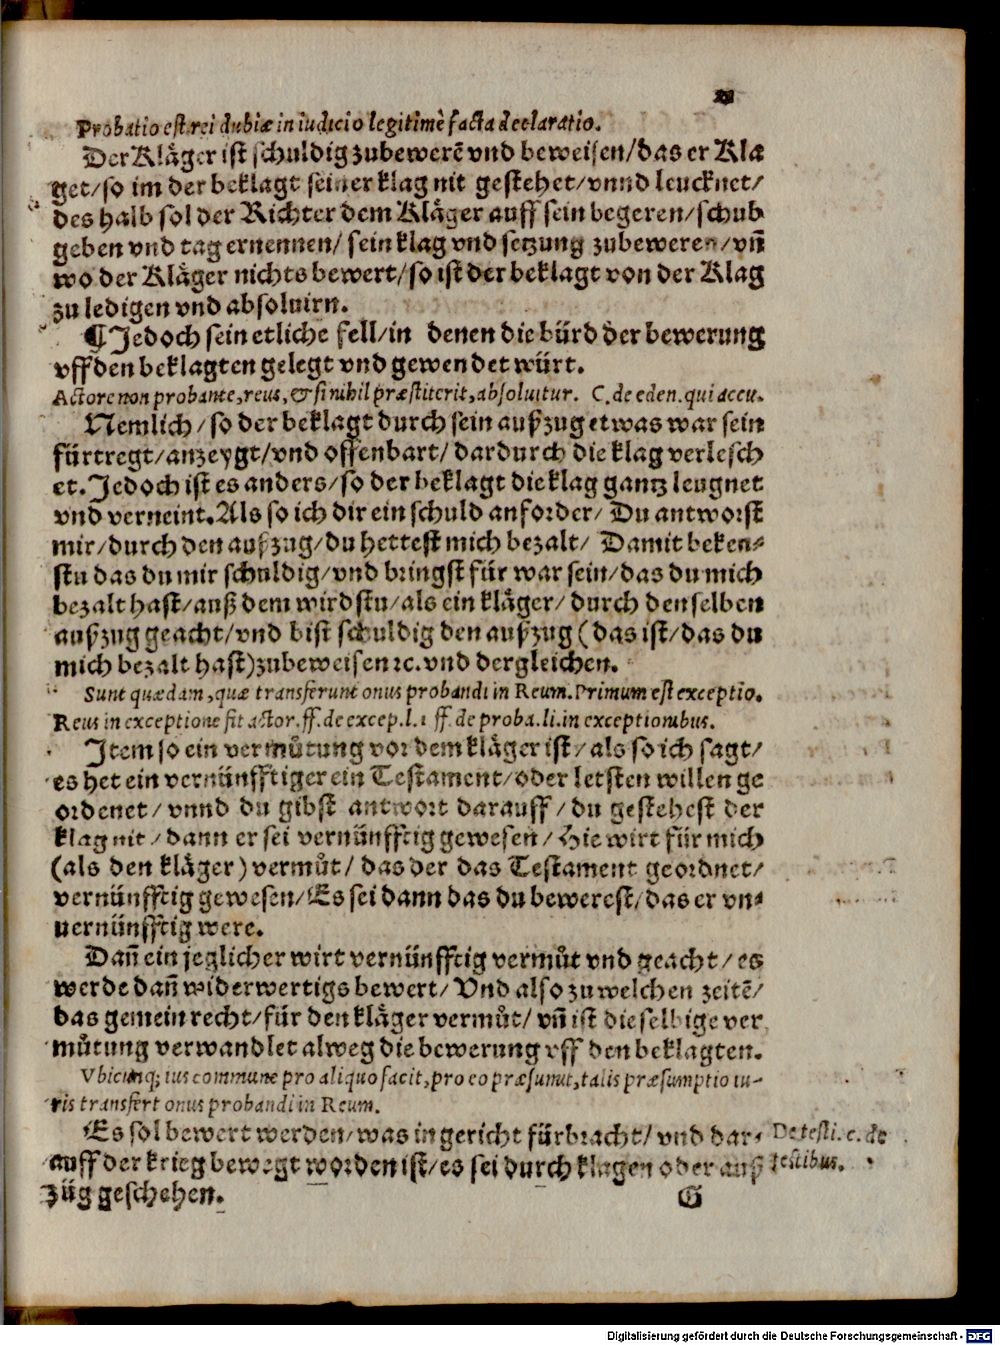 Probatio est rei dubiæ in iudicio legitimè facta declaratio.
Der Klåger ist schuldig zubewerē vnd beweisen/das er Kla
get/so im der beklagt seiner klag nit gestehet/vnnd leucknet/
des halb sol der Richter dem Klåger auff sein begeren/schub
geben vnd tag ernennen/ sein klag vnd setzung zubeweren/vn̄
wo der Klåger nichts bewert/so ist der beklagt von der Klag
zu ledigen vnd absoluirn.
¶Jedoch sein etliche fell/in denen die bürd der bewerung
vff den beklagten gelegt vnd gewendet würt.
Actore non probante, reus, & si nihil præstiterit, absoluitur. C. de eden. qui accu.
Nemlich/so der beklagt durch sein außzug etwas war sein
fürtregt/anzeygt/vnd offenbart/dardurch die klag verlesch
et. Jedoch ist es anders/so der beklagt die klag gantz leugnet
vnd verneint. Als so ich dir ein schuld anforder/ Du antworst
mir/durch den außzug/du hettest mich bezalt/ Damit beken⸗
stu das du mir schuldig/vnd bringst für war sein/das du mich
bezalt hast/auß dem wirdstu/als ein klåger/durch denselben
außzug geacht/vnd bist schuldig den außzug (das ist/das du
mich bezalt hast)zubeweisen ꝛc. vnd dergleichen.
Sunt quædam, quæ transferunt onus probandi in Reum. Primum est exceptio.
Reus in exceptione fit actor. ff. de excep. l. 1 ff. de proba. li. in exceptionibus.
Jtem so ein vermůtung vor dem klåger ist/als so ich sagt/
es het ein vernünfftiger ein Testament/oder letsten willen ge
ordenet/ vnnd du gibst antwort darauff/du gestehest der
klag nit/dann er sei vernünfftig gewesen/Hie wirt für mich
(als den klåger) vermůt/ das der das Testament geordnet/
vernünfftig gewesen/Es sei dann das du bewerest/das er vn⸗
uernünfftig were.
Dan̄ ein jeglicher wirt vernünfftig vermůt vnd geacht/es
werde dan̄ widerwertigs bewert/Vnd also zu welchen zeitē/
das gemein recht/für den klåger vermůt/ vn̄ ist dieselbige ver
můtung verwandlet alweg die bewerung vff den beklagten.
Vbicunq; ius commune pro aliquo facit, pro eo præsumit, talis præsumptio iu-
ris transfert onus probandi in Reum.
Es sol bewert werden/was in gericht fürbracht/vnd dar⸗
De testi. c. de
auff der krieg bewegt worden ist/es sei durch klagen oder auß
testibus.
züg geschehen.
G
Digitalisierung gefördert durch die Deutsche Forschungsgemeinschaft - DFG